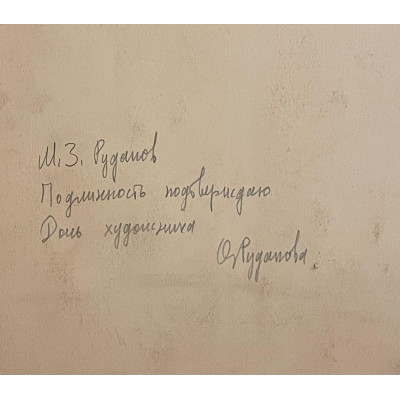 М.З. Рудаков
Подлинность подтверждаю
Дочь художника
О Рудакова